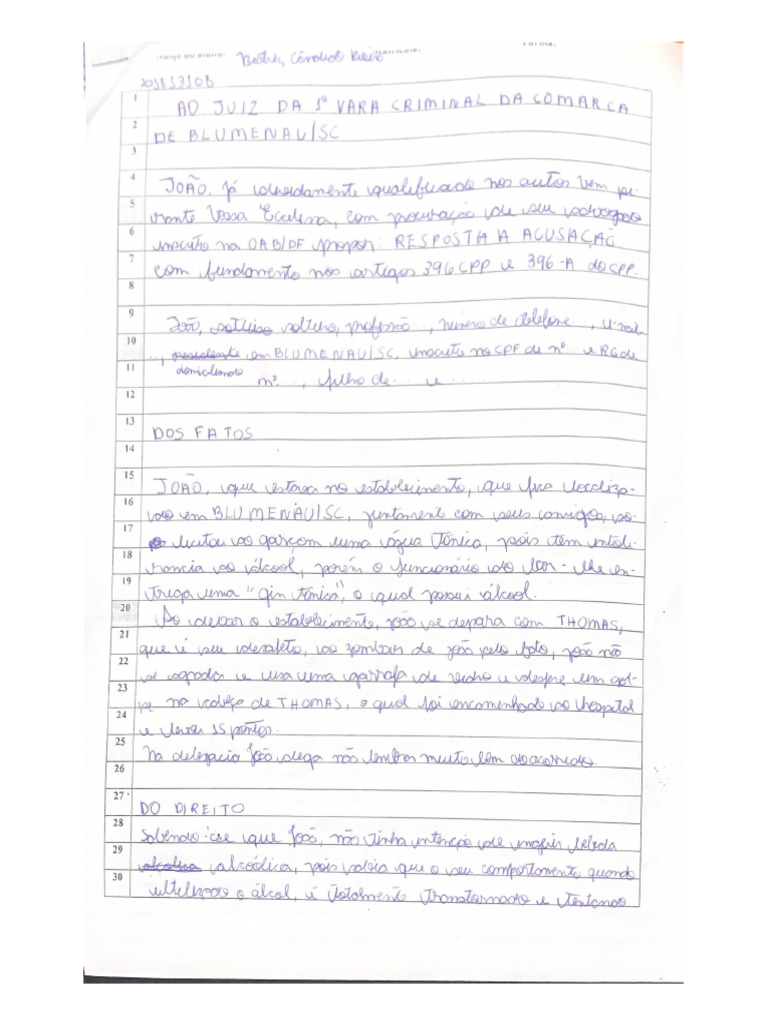 Nome do aluno: Beatriz Cândido Matrícula: Turma:
1 AO JUIZ DA 1ª VARA CRIMINAL DA COMARCA
2 DE BLUMENAU/SC
3
4 JOÃO, já devidamente qualificado nos autos vem pe-
5 rante Vossa Ecelesa, com procuração de seu advogado
6 inscrito na OAB/DF propor: RESPOSTA A ACUSAÇÃO
7 com fundamento nos artigos 396 CPP e 396-A do CPP.
8
9 João, solteiro, profissão..., número de telefone , e-mail
10 ..., residente em BLUMENAU/SC, inscrito no CPF de nº e RG de
11 domiciliado nº ..., filho de... e .....
12
13 DOS FATOS
14
15 JOÃO, que estava no estabelecimento, que fica localiza-
16 do em BLUMENAU/SC, juntamente com seus amigos, so-
17 licitou ao garçom uma água tônica, pois tem intole-
18 rancia ao álcool, porém o funcionário do bar - lhe en-
19 trega uma "gin tônica", o qual possui álcool.
20 Ao deixar o estabelecimento, João se depara com THOMAS,
21 que é seu desafeto, ao zombar de João pelo fato, João não
22 se agrada e usa uma garrafa de vidro e desfere um gol-
23 pe na cabeça de THOMAS, o qual foi encaminhado ao hospital
24 e levar 15 pontos.
25 Na delegacia João alega não lembrar muito bem do ocorrido
26
27 DO DIREITO
28 Sabendo-se que João, não tinha intenção de ingerir bebida
29 alcoólica, pois sabia que o seu comportamento quando
30 utilizado o álcol, é totalmente transtornado e tentando